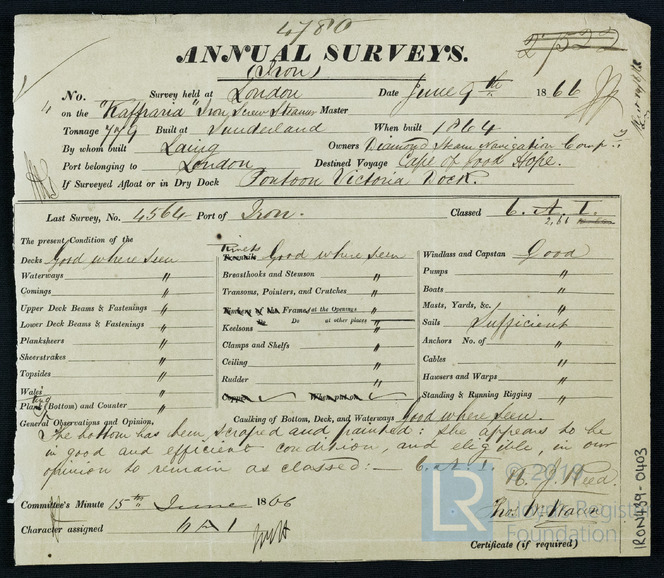 4780
ANNUAL SURVEYS.
(Iron)
2522
No. Survey held at London Date June 9th 1866
on the "Kaffraria" Iron Screw Steamer Master
Tonnage 779 Built at Sunderland When built 1864
By whom built Laing Owners Diamond Steam Navigation Comp.
Port belonging to London Destined Voyage Cape of Good Hope.
If Surveyed Afloat or in Dry Dock Pontoon Victoria Dock.
Last Survey, No. 4564 Port of Iron. Classed 6. A. 1.
2,66
The present Condition of the
Decks Good where seen
Waterways "
Comings "
Upper Deck Beams & Fastenings "
Lower Deck Beams & Fastenings "
Planksheers "
Sheerstrakes "
Topsides "
Wales "
Plating (Bottom) and Counter "
Rivets Good where seen
Breasthooks and Stemson "
Transoms, Pointers, and Crutches "
Frames at the Openings "
Do Do at other places "
Keelsons "
Clamps and Shelfs "
Ceiling "
Rudder "
Copper When put on
Windlass and Capstan Good
Pumps "
Boats "
Masts, Yards, &c. "
Sails Sufficient
Anchors No. of "
Cables "
Hawsers and Warps "
Standing & Running Rigging "
Caulking of Bottom, Deck, and Waterways Good where seen.
General Observations and Opinion,
The bottom has been scraped and painted: She appears to be
in good and efficient condition, and eligible, in our
opinion to remain as classed:- 6. A. 1.
Committee's Minute 15th June 1866
Character assigned 6 A 1
Certificate (if required)
LR
© 2019
Lloyd's Register
Foundation
IRON439-0403